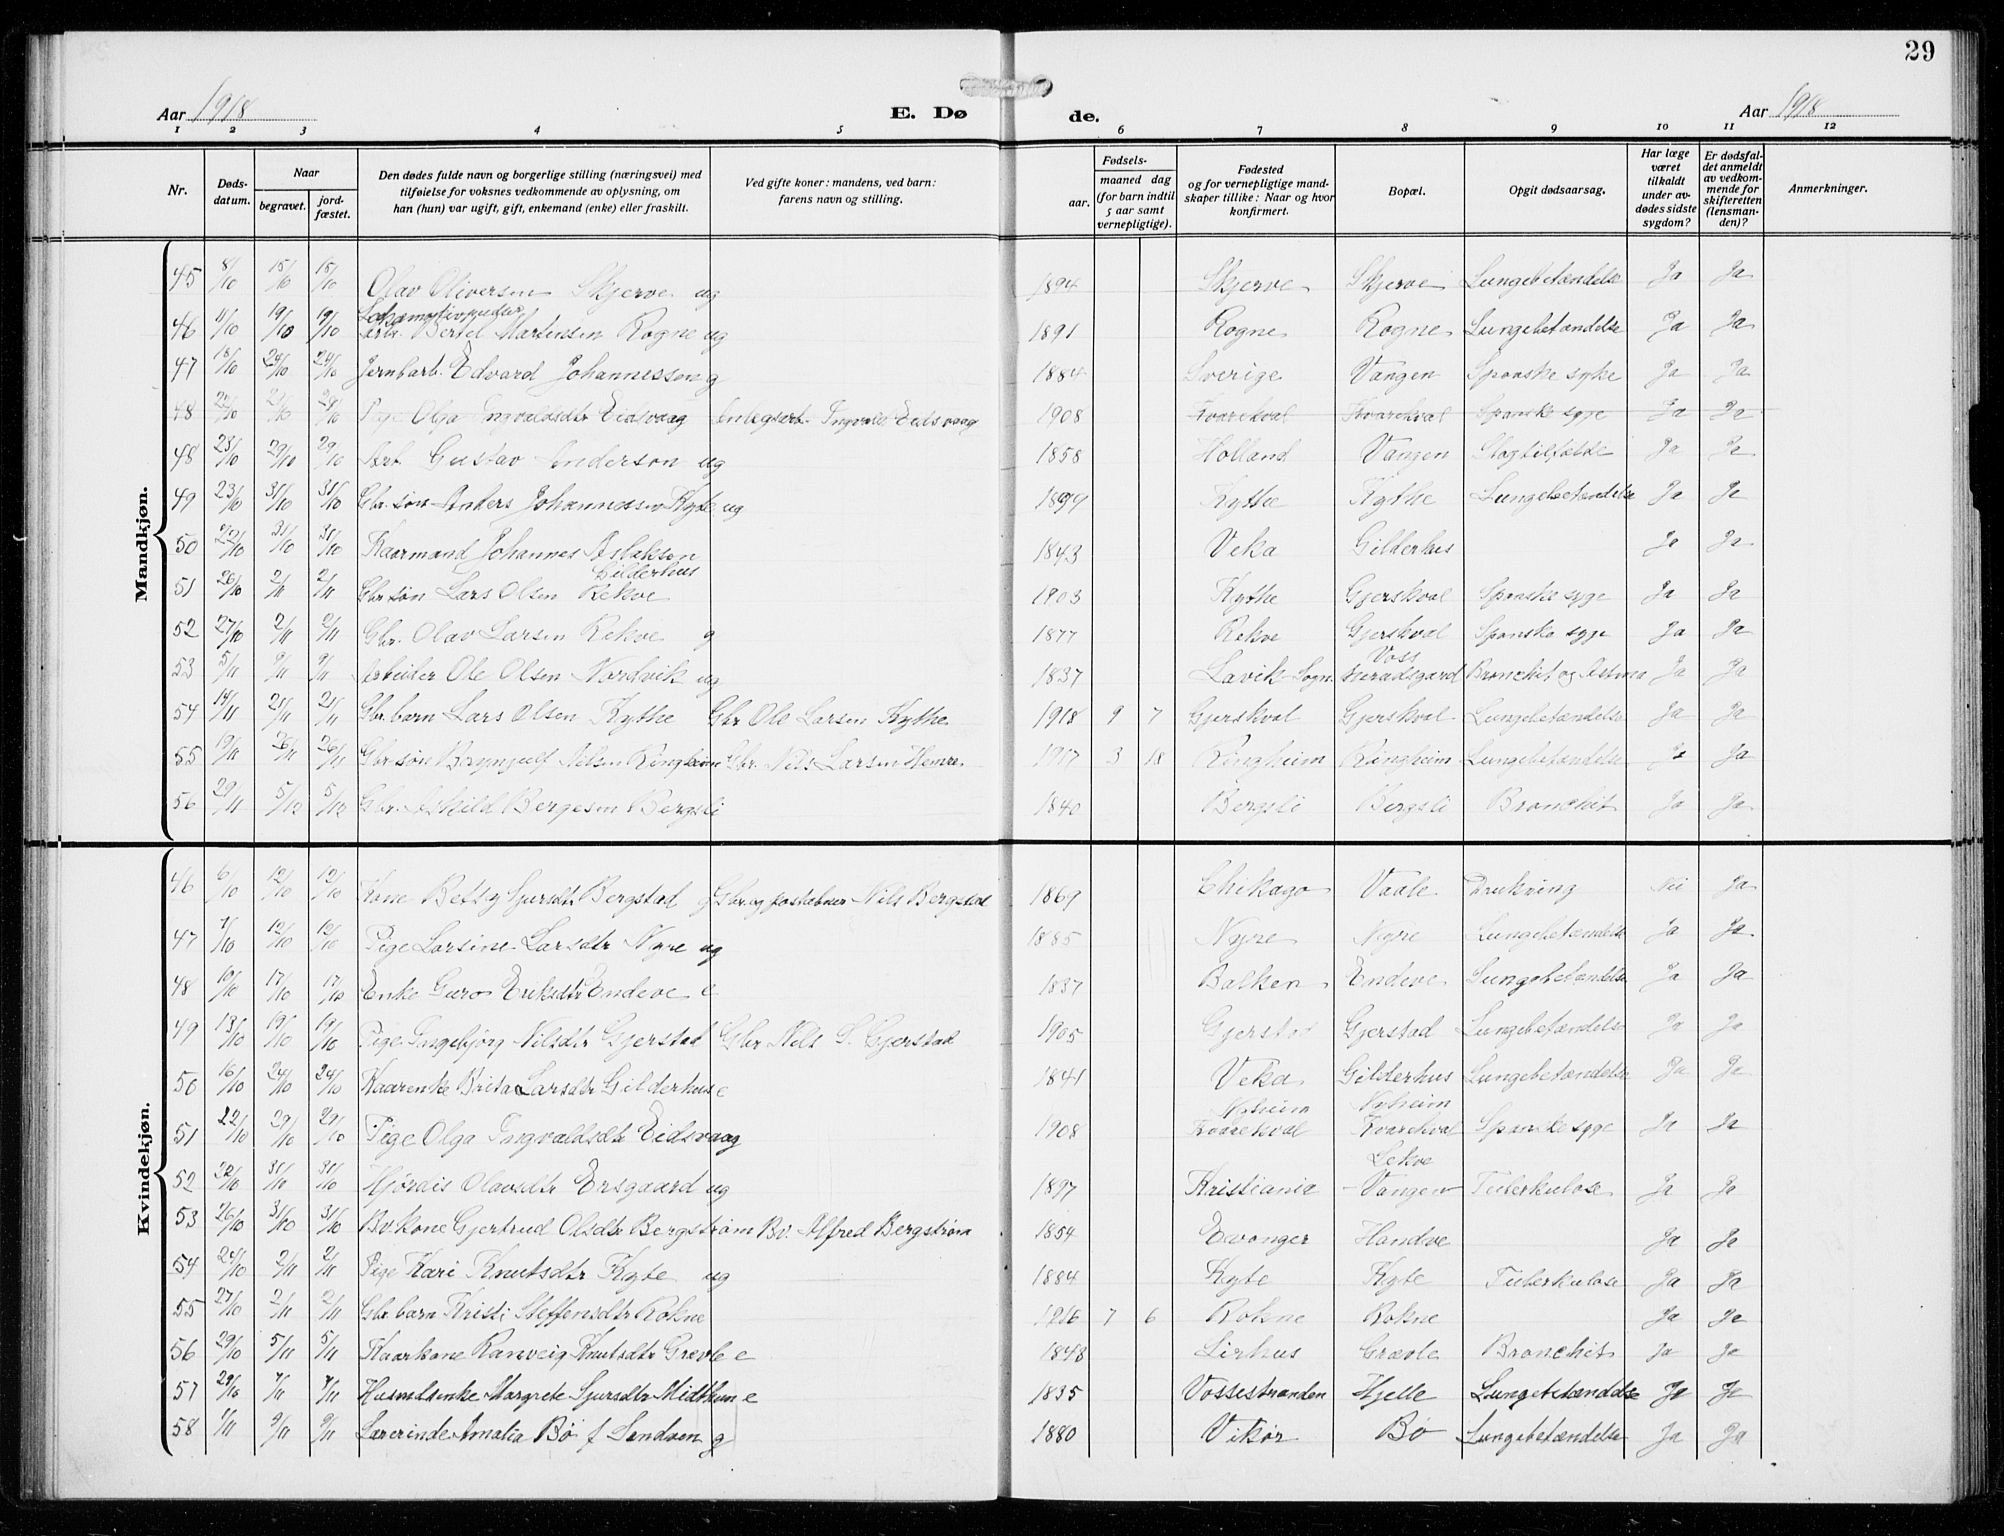 29
Aar 1918 E. Dø de. Aar 1918
1 2 3 4 5 6 7 8 9 10 11 12
Nr. Døds-datum. Naar begravet. jord-fæstet. Den dødes fulde navn og borgerlige stilling (næringsvei) med tilføielse for voksnes vedkommende av oplysning, om han (hun) var ugift, gift, enkemand (enke) eller fraskilt. Ved gifte koner: mandens, ved barn: farens navn og stilling. Fødsels- aar. maaned dag (for barn indtil 5 aar samt vernepligtige). Fødested og for vernepligtige mand-skaper tillike: Naar og hvor konfirmert. Bopæl. Opgit dødsaarsag. Har læge været tilkaldt under av-dødes sidste sygdom? Er dødsfal-det anmeldt av vedkom-mende for skifteretten (lensman-den)? Anmerkninger.
Mandkjøn.
45 8/10 15/10 15/10 Olav Oliversen Skjerve ug 1894 Skjerve Skjerve Lungebetændelse Ja Ja
46 11/10 19/10 19/10 Bertel Martinsen Rogne ug 1891 Rogne Rogne Lungebetændelse Ja Ja
47 18/10 24/10 24/10 Jernbarb. Edvard Johannesson g 1884 Sverige Vangen Spanske syke Ja Ja
48 22/10 29/10 29/10 Pige Olga Ingvaldsdtr Eidsvaag Ingvald Eidsvaag 1908 Kvarekval Kvarekval Spanske syge Ja Ja
48 23/10 29/10 29/10 Arb. Gustav Anderson ug 1858 Holland Vangen Slagtilfælde Ja Ja
49 23/10 31/10 31/10 Gbr.søn Anders Johannessen Kyte ug 1899 Kythe Kythe Lungebetændelse Ja Ja
50 22/10 31/10 31/10 Kaarmand Johannes Aslaksen Gilderhus 1843 Veka Gilderhus Ja Ja
51 26/10 2/11 2/11 Gbr søn Lars Olsen Rekve 1903 Kythe Gjerskval Spanske syge Ja Ja
52 27/10 2/11 2/11 Gbr. Olav Larsen Rekve g 1877 Rekve Gjerskval Spanske syge Ja Ja
53 5/11 9/11 9/11 Arbeider Ole Olsen Nordvik ug 1837 Lavik Sogn. Voss Heradsgard Bronchit og Astma Ja Ja
54 14/11 21/11 21/11 Gbr.barn Lars Olsen Kythe Gbr Ole Larsen Kythe 1918 9 7 Gjerskval Gjerskval Lungebetændelse Ja Ja
55 19/11 26/11 26/11 Gbr søn Brynjulf Nilsen Ringheim Gbr. Nils Larsen Hemre 1917 3 18 Ringheim Ringheim Lungebetændelse Ja Ja
56 29/11 5/12 5/12 Gbr. Askild Bergesen Bergsli 1840 Bergsli Bergsli Bronchit Ja Ja
Kvindekjøn.
46 6/10 12/10 12/10 Kone Betsy Sjursdtr Bergstad g Gbr. og postaabner Nils Bergstad 1869 Chikago Vaale Drukning Nei Ja
47 7/10 12/10 12/10 Pige Larsine Larsdtr Nyre ug 1885 Nyre Nyre Lungebetændelse Ja Ja
48 10/10 17/10 17/10 Enke Guro Eriksdtr Endeve e 1837 Balken Endeve Lungebetændelse Ja Ja
49 13/10 19/10 19/10 Pige Ingebjørg Nilsdtr Gjerstad Gbr Nils S. Gjerstad 1905 Gjerstad Gjerstad Lungebetændelse Ja Ja
50 16/10 24/10 24/10 Kaarenke Brita Larsdtr Gilderhus e 1841 Veka Gilderhus Lungebetændelse Ja Ja
51 22/10 29/10 29/10 Pige Olga Ingvaldsdtr Eidsvaag 1908 Nyheim Kvarekval Nyheim Kvarekval Spanske syge Ja Ja
52 22/10 31/10 31/10 Hjørdis Olavsdtr Ersgaard ug 1897 Kristiania Lekve Vangen Tuberkulose Ja Ja
53 26/10 31/10 31/10 Bv. kone Gjertrud Olsdtr Bergstrøm Bv. Alfred Bergstrøm 1854 Evanger Handve Ja Ja
54 24/10 2/11 2/11 Pige Kari Knutsdtr Kyte ug 1884 Kyte Kyte Tuberkulose Ja Ja
55 27/10 2/11 2/11 Gbr barn Kristi Steffensdtr Rokne 1916 7 6 Rokne Rokne Ja Ja
56 29/10 5/11 5/11 Kaarkone Ranveig Knutsdtr Grevle e 1843 Lirhus Grævle Bronchit Ja Ja
57 29/10 7/11 7/11 Husmdsenke Margrete Sjursdtr Midthun e 1835 Vossestranden Hjelle Lungebetændelse Ja Ja
58 1/11 9/11 9/11 Lærerinde Amalia Bø f Sandven g 1880 Vikør Bø Lungebetændelse Ja Ja